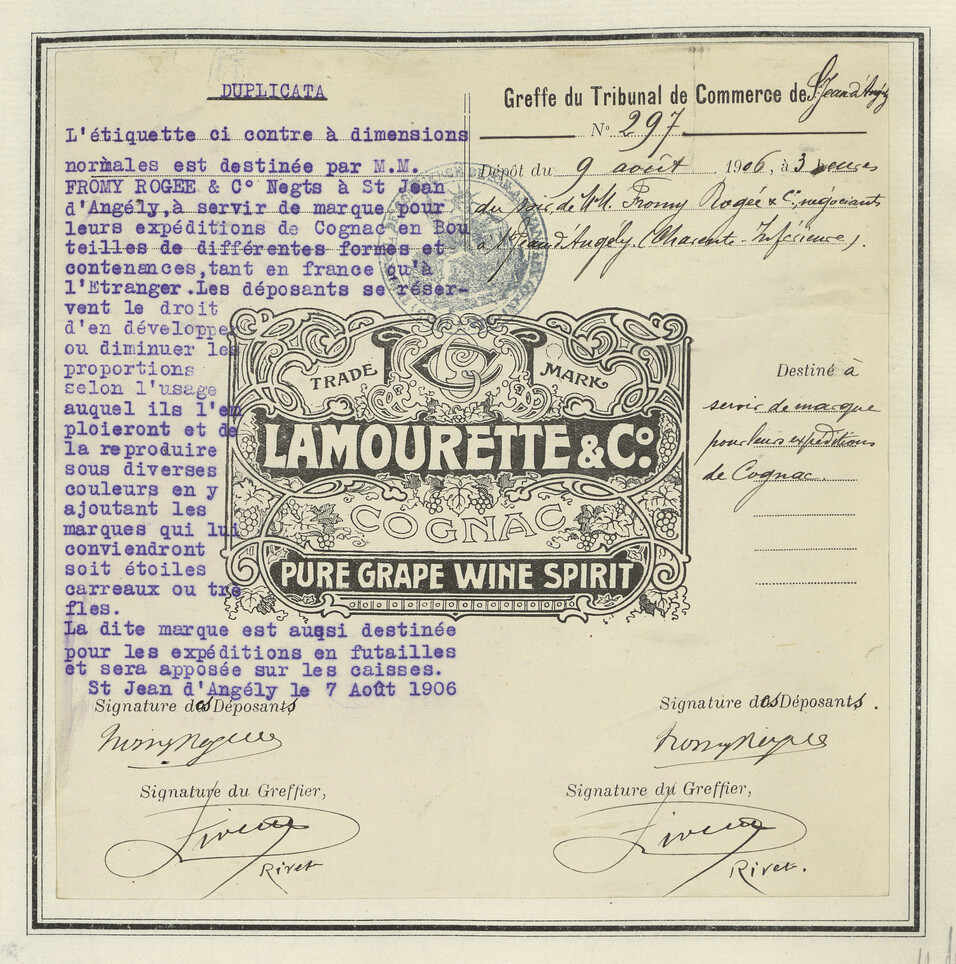 DUPLICATA
L'étiquette ci contre à dimensions
normales est destinée par M.M.
FROMY ROGEE & C° Negts à St Jean
d'Angély,à servir de marque pour
leurs expéditions de Cognac en Bou
teilles de différentes formes et
contenances,tant en france qu'à
l'Etranger.Les déposants se réser-
vent le droit
d'en développer
ou diminuer les
proportions
selon l'usage
auquel ils l'em
ploieront et de
la reproduire
sous diverses
couleurs en y
ajoutant les
marques qui lui
conviendront
soit étoiles
carreaux ou trè
fles.
La dite marque est aussi destinée
pour les expéditions en futailles
et sera apposée sur les caisses.
St Jean d'Angély le 7 Août 1906
Signature des Déposants
Fromy Rogée
Signature du Greffier,
Rivet
Greffe du Tribunal de Commerce de St Jean d'Angély
N° 297
Dépôt du 9 août 1906, à 3 heures
du soir, de M.M. Fromy Rogée & Cie, négociants
à St Jean d'Angély (Charente-Inférieure).
TRADE MARK
LAMOURETTE & Co.
COGNAC
PURE GRAPE WINE SPIRIT
Destiné à
servir de marque
pour leurs expéditions
de Cognac.
Signature des Déposants.
Fromy Rogée
Signature du Greffier,
Rivet.